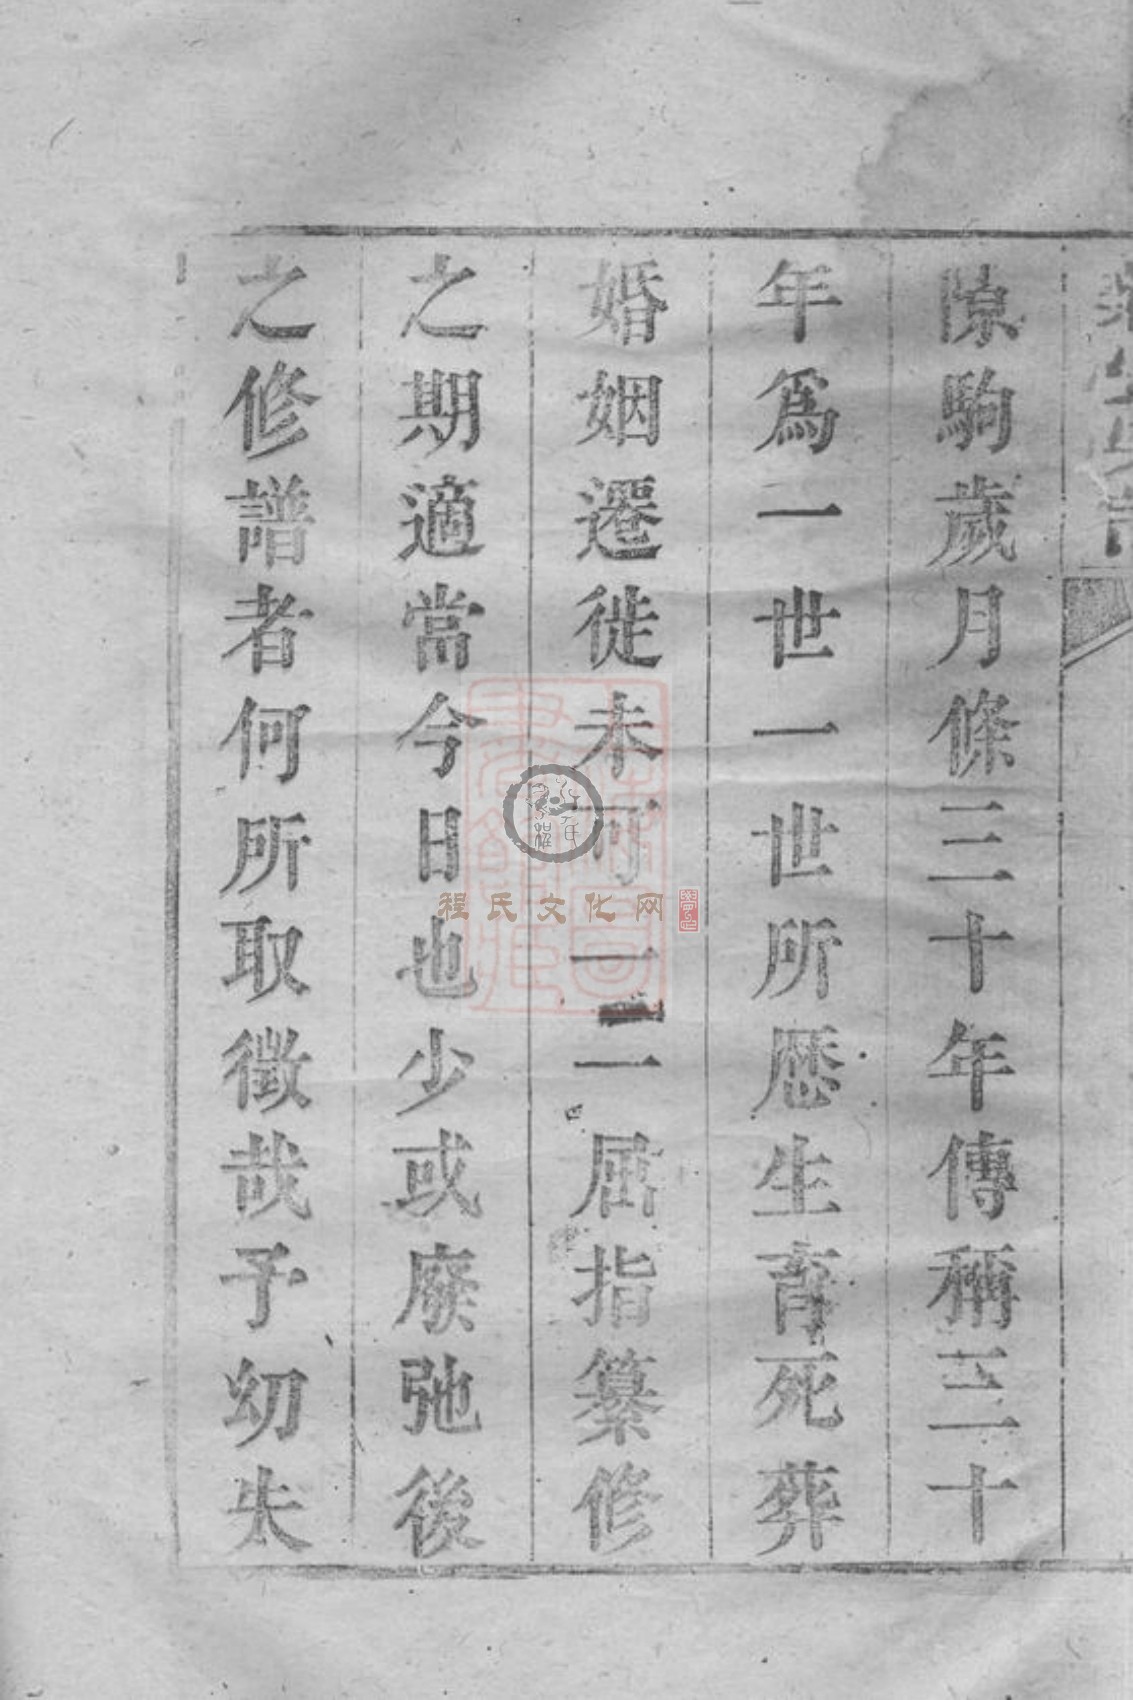 隙駒歲月條三十年傳稱三十
年爲一世一世所歷生育死葬
婚姻遷徙未可一二屈指纂修
之期適當今日也少或廢弛後
之修譜者何所取徵哉予幼失
程氏文化网